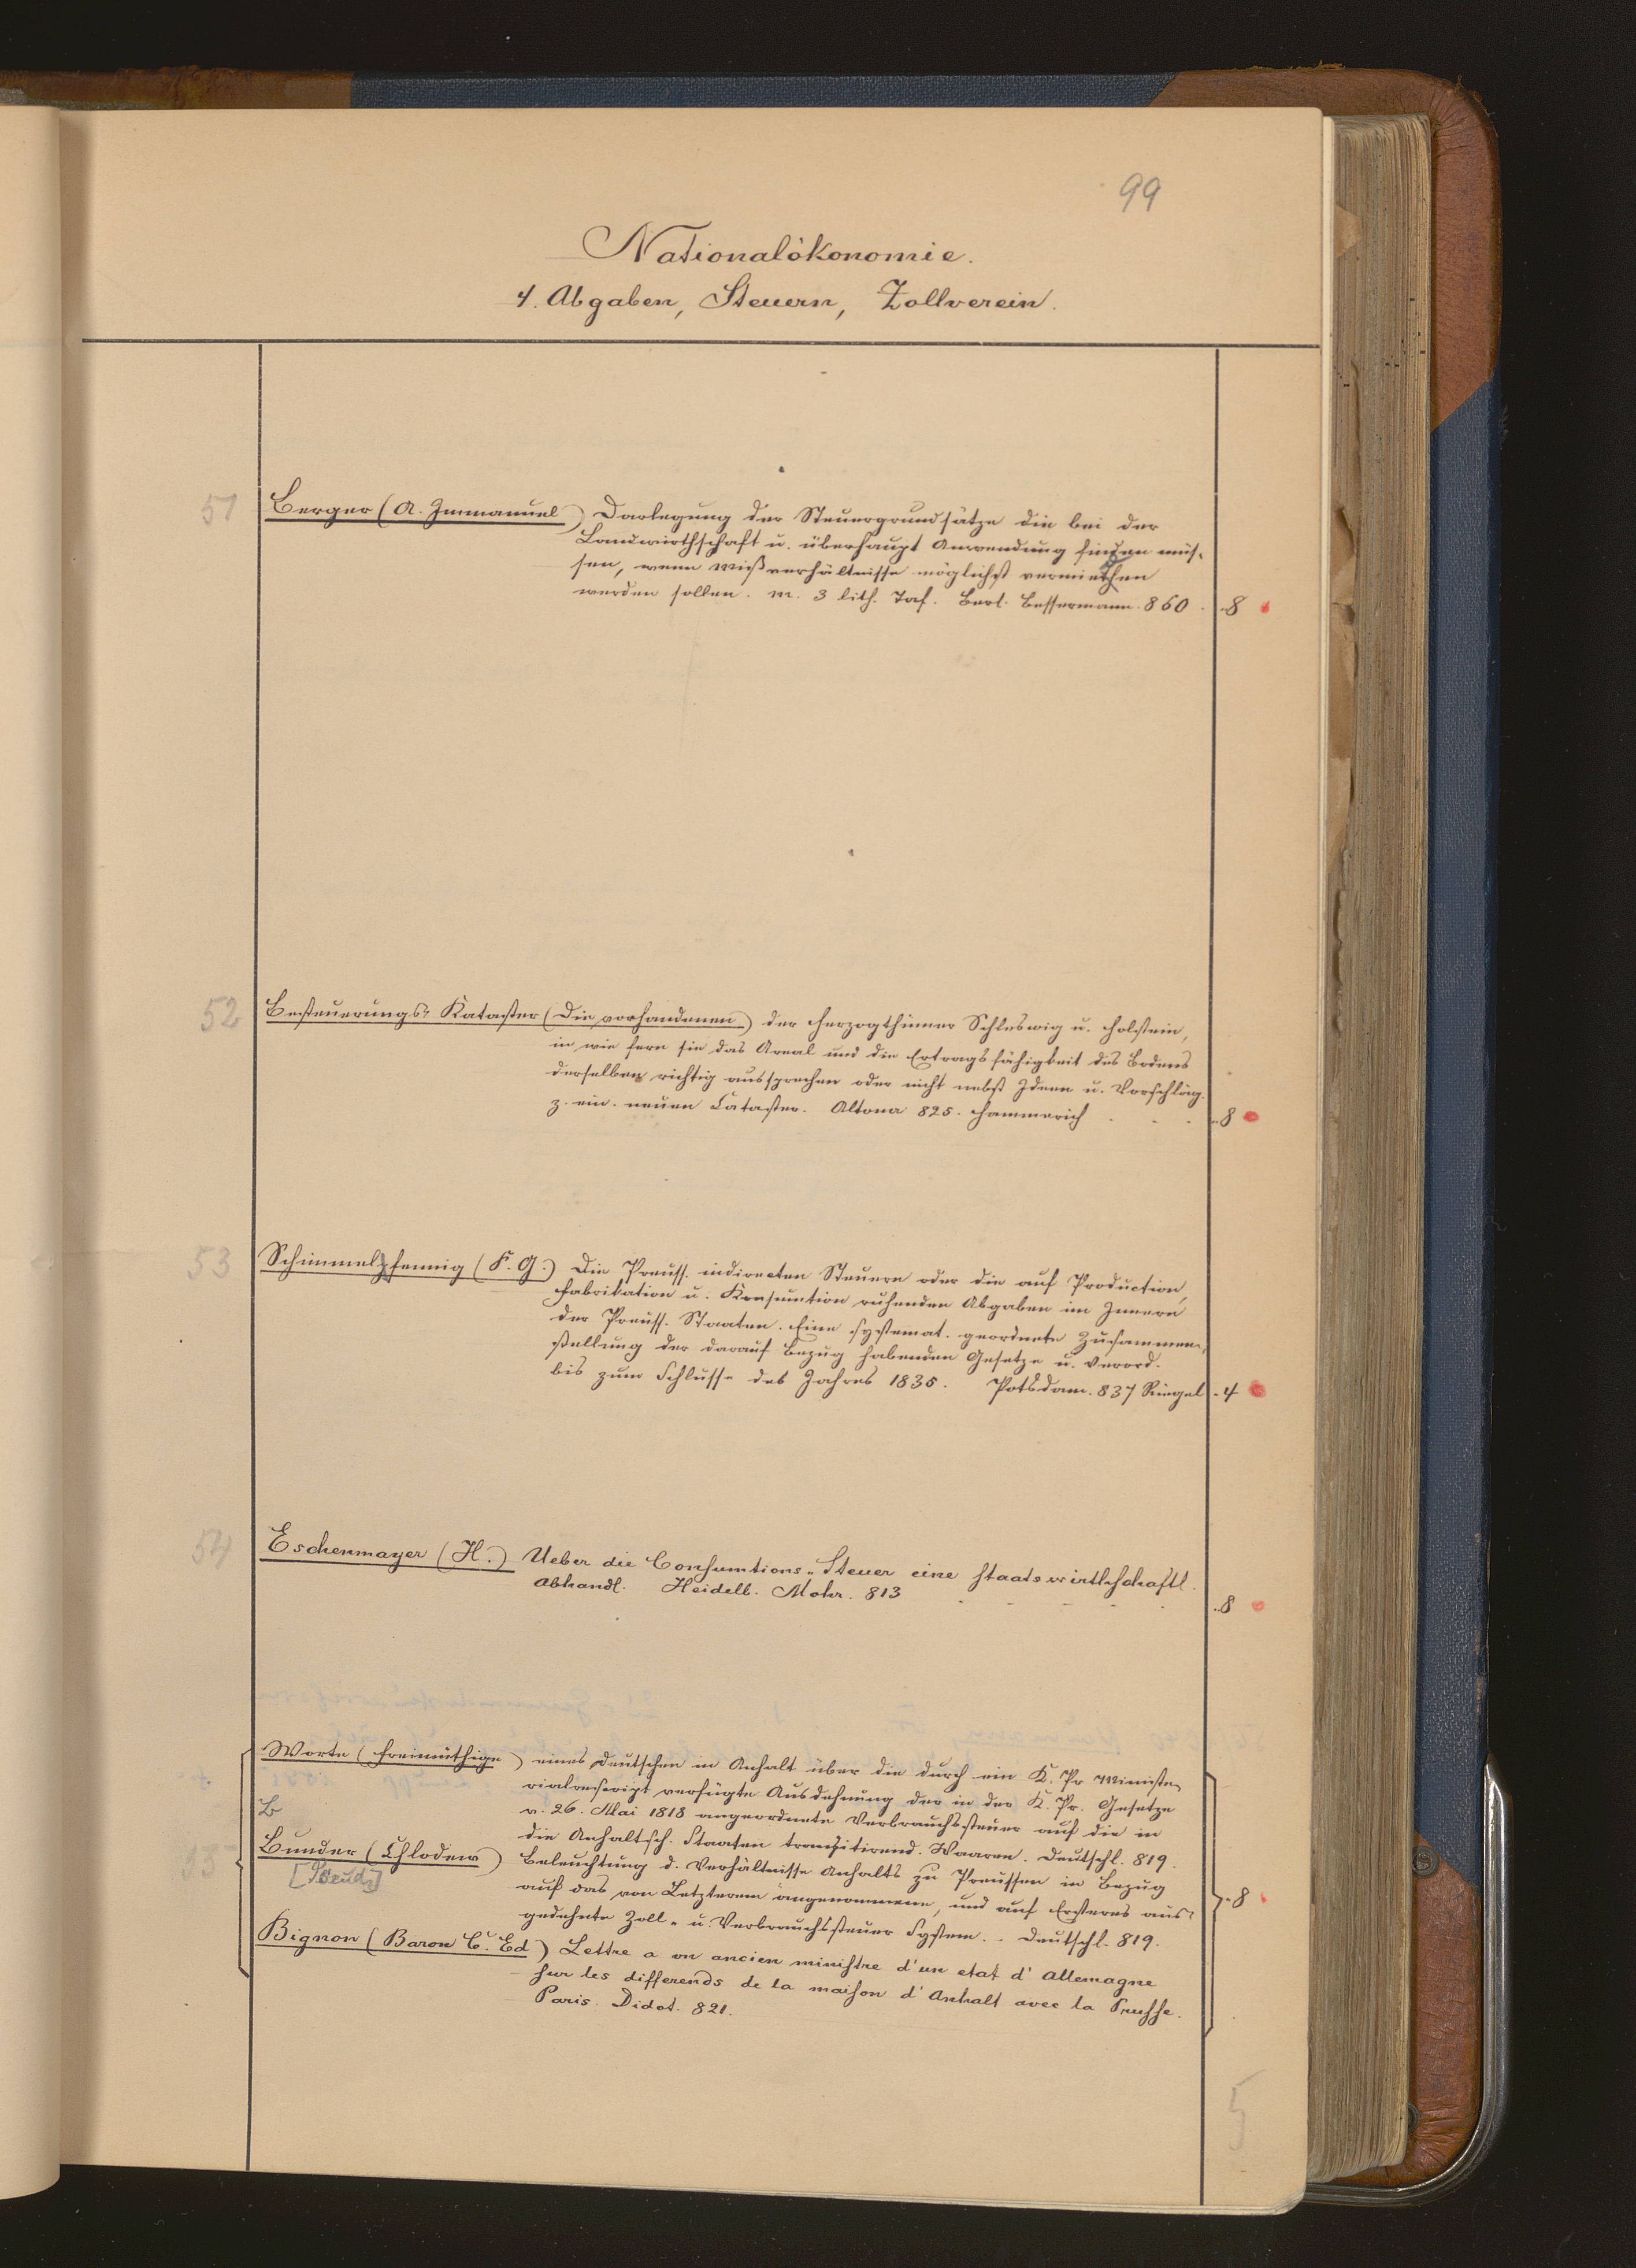 99
Nationalökonomie.
4. Abgaben, Steuern, Zollverein.
51 Berger (A. Immanuel) Darlegung der Steuergrundsätze die bei der
Landwirthschaft u. überhaupt Anwendung finden müs-
sen, wenn Mißverhältnisse möglichst vermiethen
werden sollen. M. 3 lith. Taf. Berl. Bessermann. 860. 8
52 Besteuerungs-Kataster (Die vorhandenen) der Herzogthümer Schleswig u. Holstein,
in wie fern sie das Areal und die Ertragsfähigkeit des Bodens
derselben richtig aussprechen oder nicht nebst Ideen u. Vorschläg.
z. ein. neuen Cataster. Altona 825. Hammerich . . . 8
53 Schimmelpfennig (F. G.) Die Preuss. indirecten Steuern oder die auf Production,
Fabrikation u. Konsumtion ruhenden Abgaben im Innern
der Preuss. Staaten. Eine systemat. geordnete Zusammen-
stellung der darauf Bezug habenden Gesetze u. Verord.
bis zum Schlusse des Jahres 1835. Potsdam. 837 Riegel. 4
54 Eschenmayer (H.) Ueber die Consumtions-Steuer eine staatswirthschaftl.
Abhandl. Heidelb. Mohr. 813 . . . . 8
Worte (Freimüthige) eines Deutschen in Anhalt über die durch ein K. Pr. Ministe-
rialrescript verfügte Ausdehnung der in der K. Pr. Gesetze
v. 26. Mai 1818 angeordnete Verbrauchssteuer auf die in
die Anhaltsch. Staaten transitirend. Waaren. Deutschl. 819.
Bunder (Chlodew) Beleuchtung d. Verhältnisse Anhalts zu Preussen in Bezug
[Pseud.]
auf das von Letzterem angenommene, und auf Ersteres aus-
gedehnte Zoll- u. Verbrauchssteuer System. . Deutschl. 819. 8
Bignon (Baron C. Ed) Lettre a un ancien ministre d'un etat d'Allemagne
sur les differends de la maison d'Anhalt avec la Prusse.
Paris. Didot. 821.
5